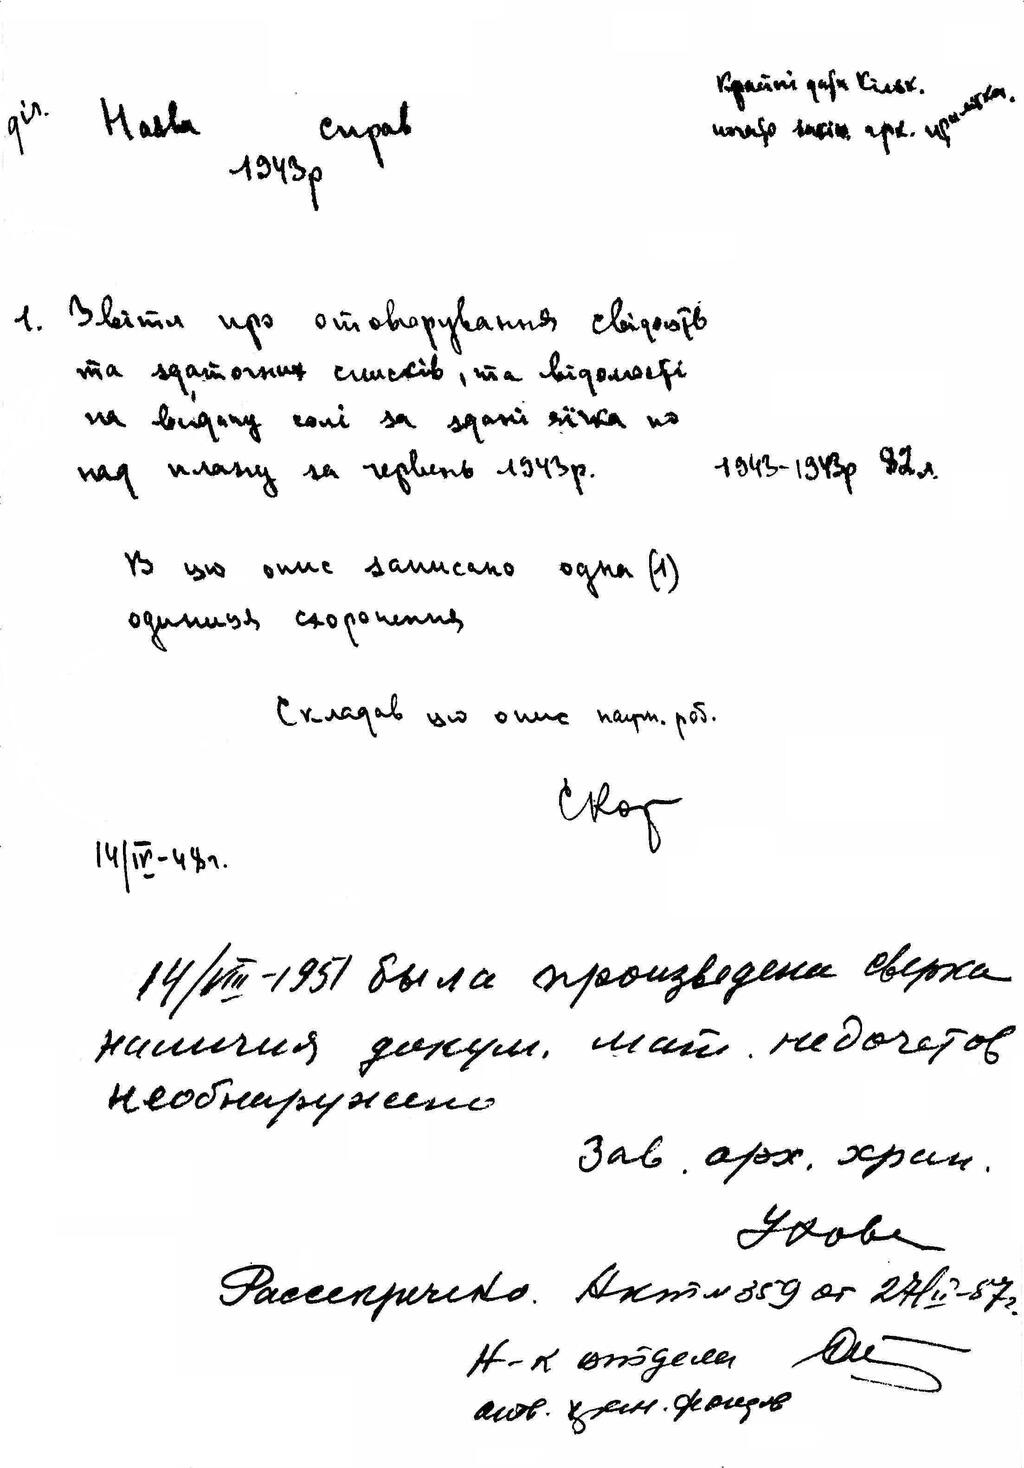 діл. Назва справ Крайні дати Кільк.
почат закін арк. примітка.
1943р
1. Звіти про отоварування свідоцтв
та здаточних списків, та відомості
на видачу солі за здані яїчка по
над плану за червень 1943р. 1943-1943р 82л.
В цю опис записано одна (1)
одиниця схоронення
Складав цю опис наук. роб.
СКор
14/IV-48г.
14/VIII-1951 была произведена сверка
наличия докум. мат. недочетов
необнаружено
Зав. арх. хран.
Рассекречено. Акт № 359 от 27/II-57г.
Н-к отдела
фондов